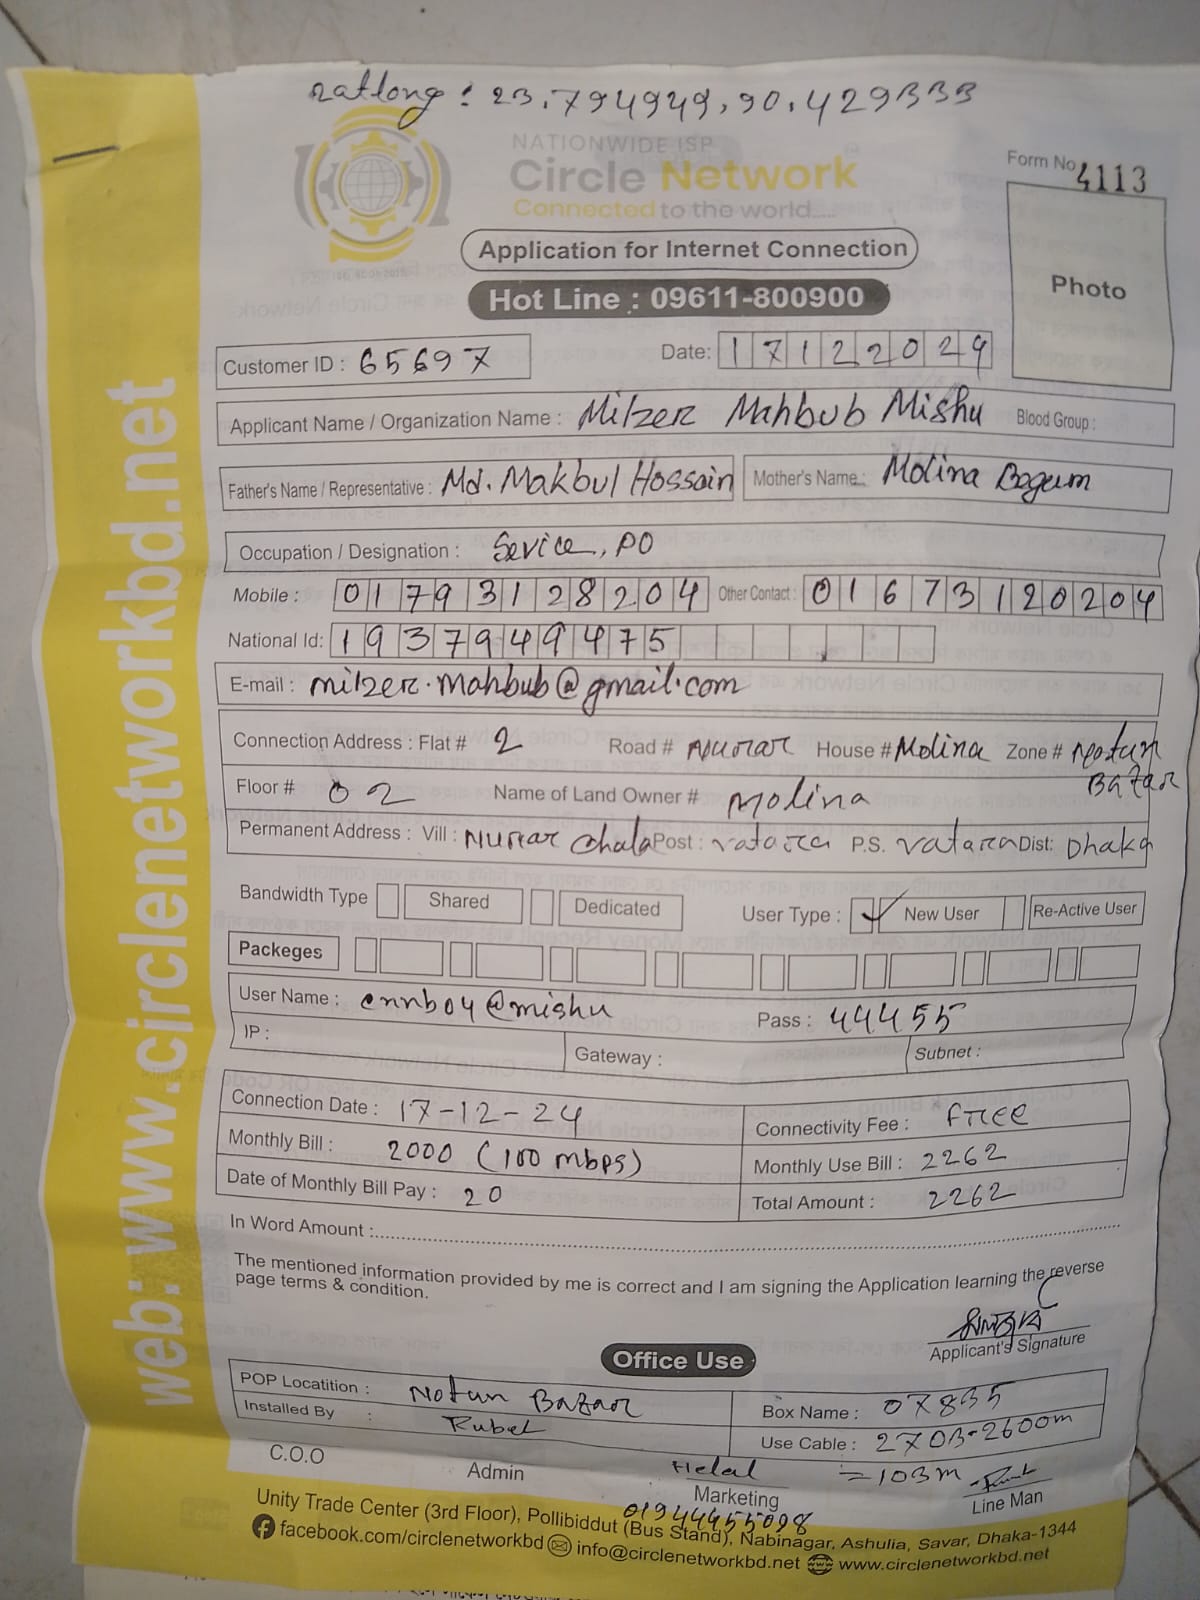 Latlong : 23.794949, 90.429333
NATIONWIDE ISP
Circle Network
Connected to the world....
Form No 4113
Photo
Application for Internet Connection
Hot Line : 09611-800900
Customer ID : 65697 Date: 17122024
Applicant Name / Organization Name : Milzer Mahbub Mishu Blood Group :
Father's Name / Representative : Md. Makbul Hossain Mother's Name : Molina Begum
Occupation / Designation : Sevice, PO
Mobile : 01793128204 Other Contact : 01673120204
National Id: 1937949475
E-mail : milzer.mahbub@gmail.com
Connection Address : Flat # 2 Road # Nurar House # Molina Zone # Notun Bazar
Floor # 02 Name of Land Owner # Molina
Permanent Address : Vill : Nurar Chala Post : Vatara P.S. Vatara Dist: Dhaka
Bandwidth Type Shared Dedicated User Type : ✓ New User Re-Active User
Packeges
User Name : cnnb04@mishu Pass : 44455
IP : Gateway : Subnet :
Connection Date : 17-12-24 Connectivity Fee : Free
Monthly Bill : 2000 (100 mbps) Monthly Use Bill : 2262
Date of Monthly Bill Pay : 20 Total Amount : 2262
In Word Amount :
The mentioned information provided by me is correct and I am signing the Application learning the reverse
page terms & condition.
Applicant's Signature
Office Use
POP Locatition : Notun Bazar Box Name : 07835
Installed By : Rubel Use Cable : 2703-2600m
=103m
C.O.O Admin Helal Marketing Line Man
01944455098
Unity Trade Center (3rd Floor), Pollibiddut (Bus Stand), Nabinagar, Ashulia, Savar, Dhaka-1344
facebook.com/circlenetworkbd info@circlenetworkbd.net www.circlenetworkbd.net
web: www.circlenetworkbd.net